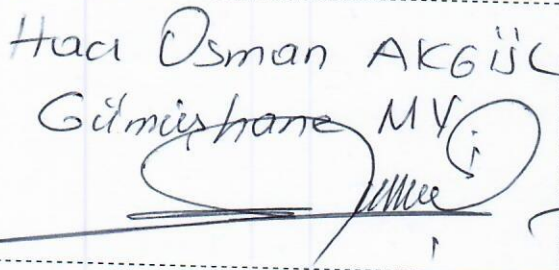 Hacı Osman AKGÜL
Gümüşhane MV